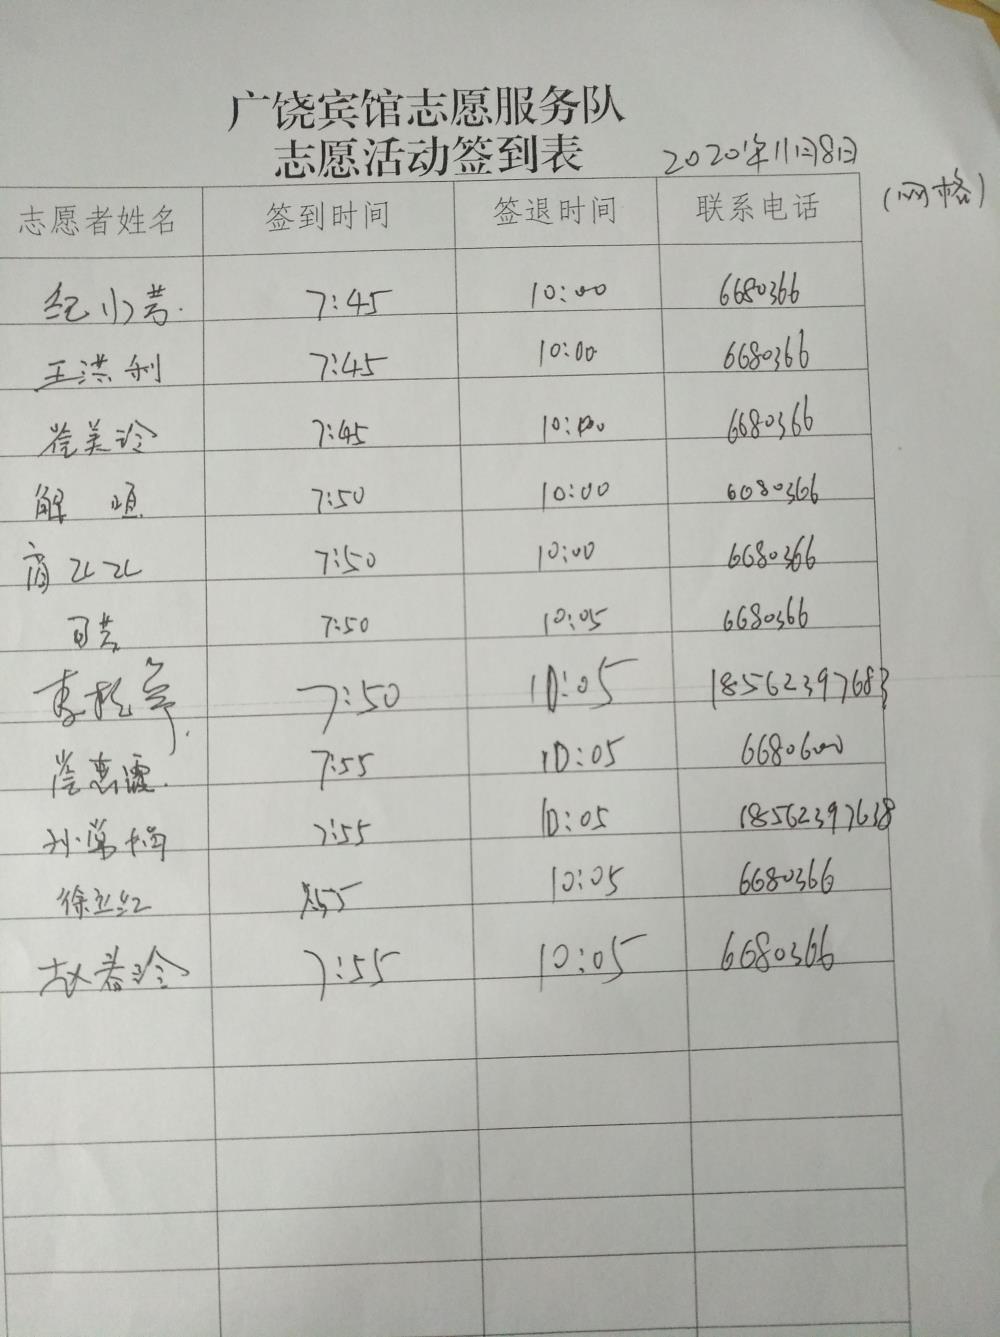 广饶宾馆志愿服务队
志愿活动签到表 2020年11月8日
(网格)
志愿者姓名 签到时间 签退时间 联系电话
纪小芳 7:45 10:00 6680366
王洪利 7:45 10:00 6680366
美玲 7:45 10:00 6680366
解 7:50 10:00 6680366
7:50 10:00 6680366
7:50 10:05 6680366
李 7:50 10:05 18562397683
7:55 10:05 6680600
孙 7:55 10:05 18562397638
徐 7:55 10:05 6680366
赵春玲 7:55 10:05 6680366